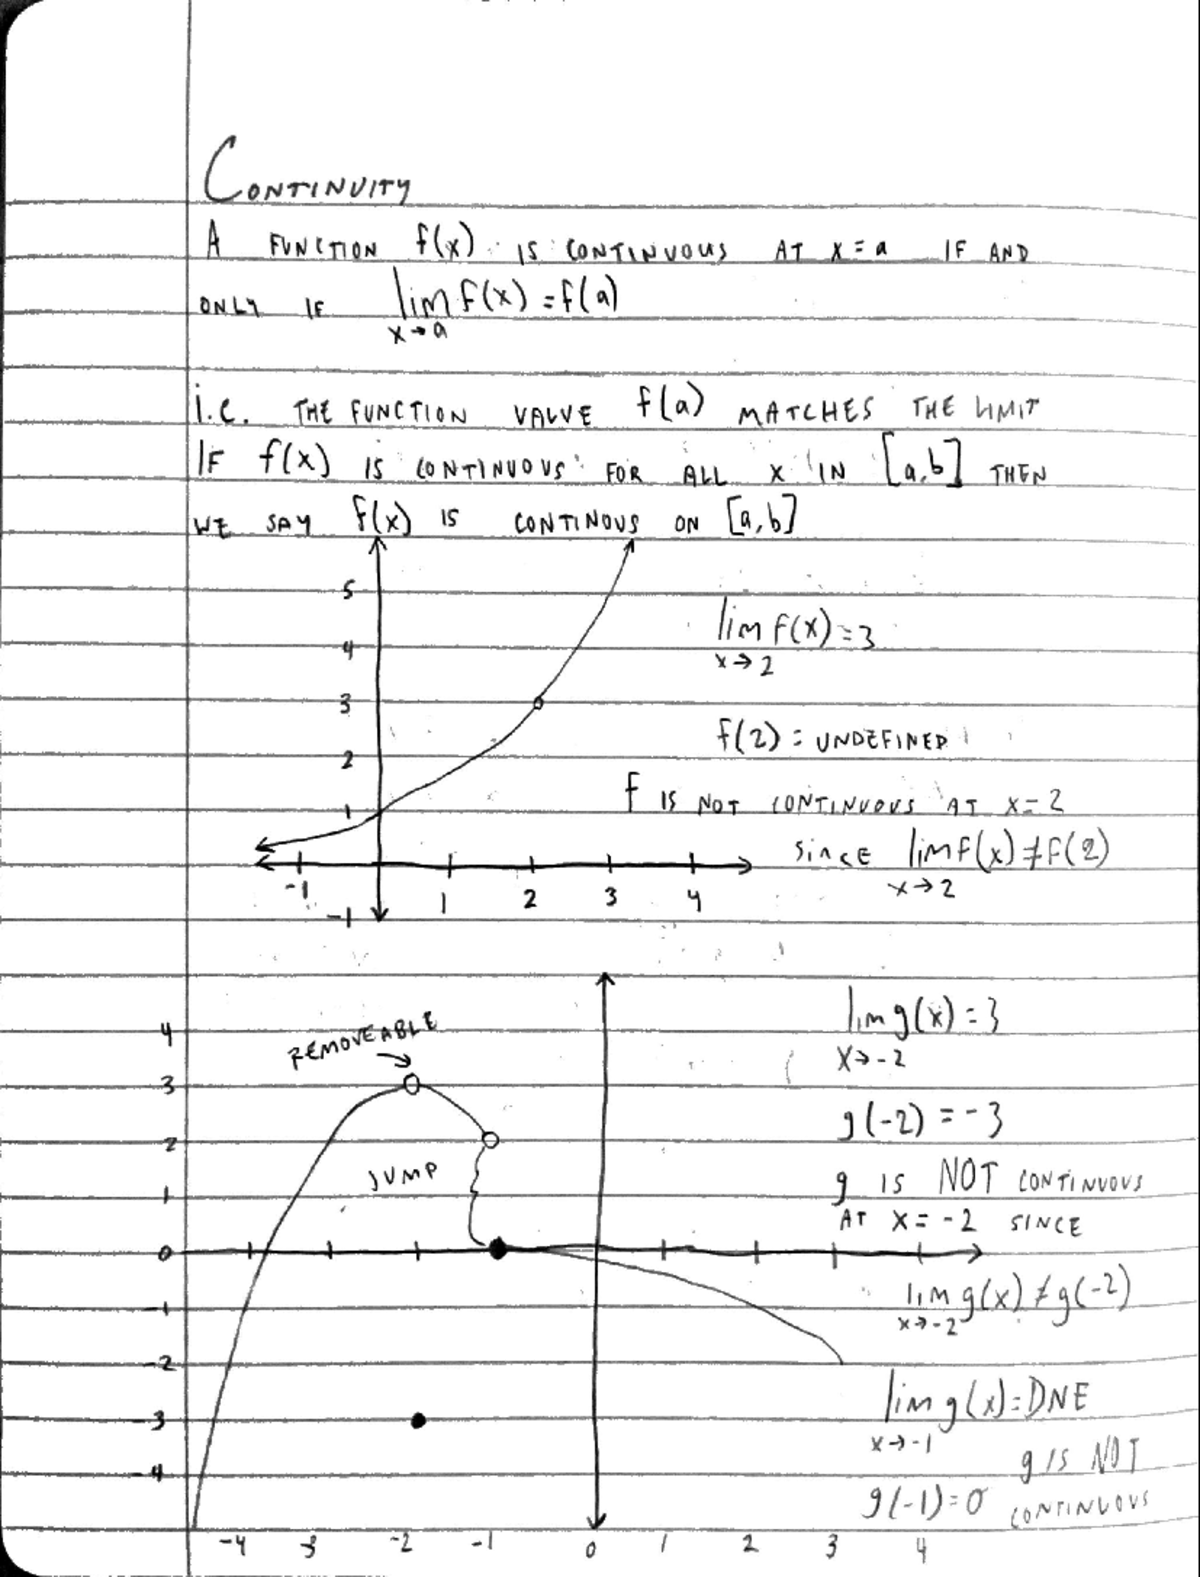 CONTINUITY
A FUNCTION f(x) IS CONTINUOUS AT x = a IF AND
ONLY IF lim f(x) = f(a)
x→a
i.e. THE FUNCTION VALUE f(a) MATCHES THE LIMIT
IF f(x) IS CONTINUOUS FOR ALL x IN [a,b] THEN
WE SAY f(x) IS CONTINOUS ON [a,b]
5
4
3
2
1
-1 1 2 3 4
-1
lim f(x) = 3
x→2
f(2) = UNDEFINED
f IS NOT CONTINUOUS AT x = 2
SINCE lim f(x) ≠ f(2)
x→2
REMOVEABLE
JUMP
4
3
2
1
0
-1
-2
-3
-4
-4 3 -2 -1 0 1 2 3 4
lim g(x) = 3
x→-2
g(-2) = -3
g IS NOT CONTINUOUS
AT x = -2 SINCE
lim g(x) ≠ g(-2)
x→-2
lim g(x) = DNE
x→-1
g IS NOT
g(-1) = 0 CONTINUOUS